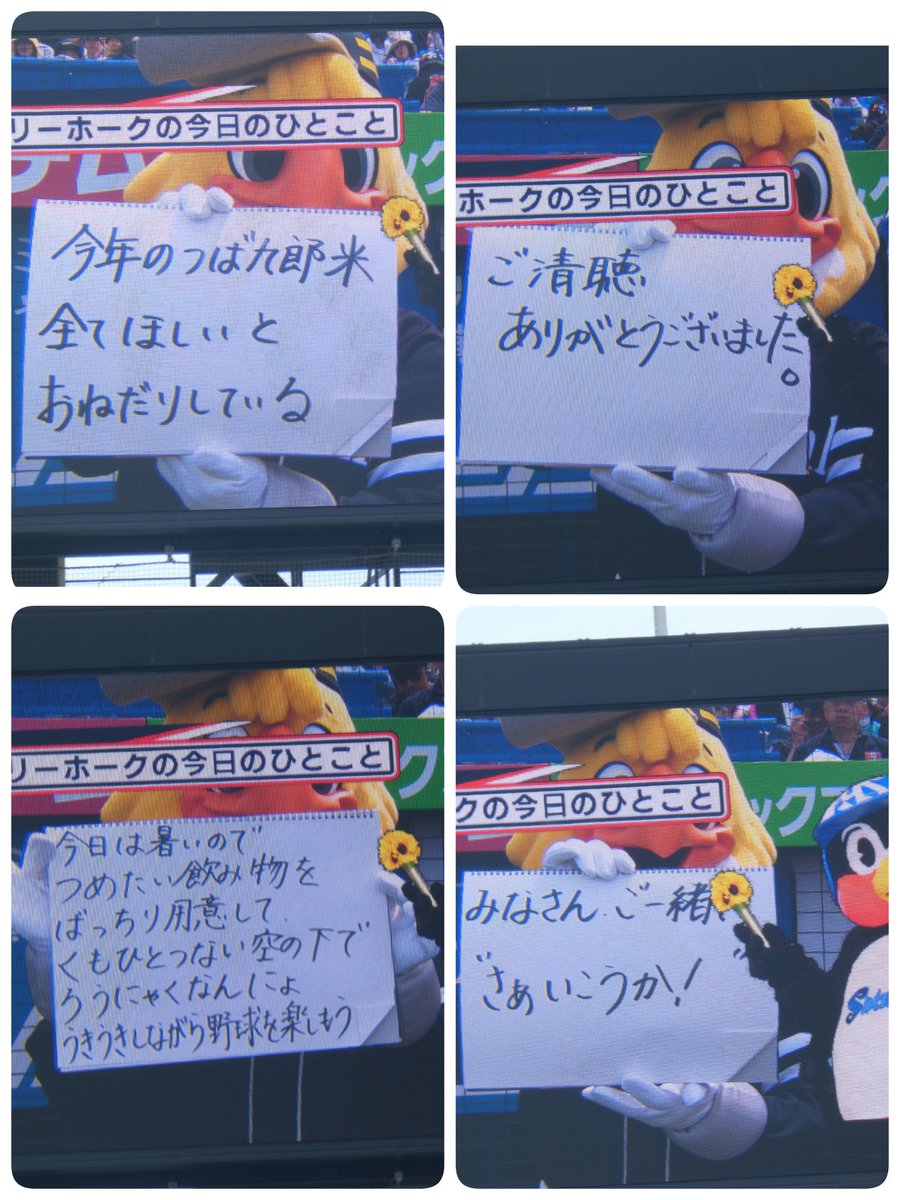 リーホークの今日のひとこと
今年のつば九郎米
全てほしいと
おねだりしている
ホークの今日のひとこと
ご清聴
ありがとうございました。
リーホークの今日のひとこと
今日は暑いので
つめたい飲み物を
ばっちり用意して、
くもひとつない空の下で
ろうにゃくなんにょ
うきうきしながら野球を楽しもう
クの今日のひとこと
みなさん、ご一緒
"さぁいこうか!"